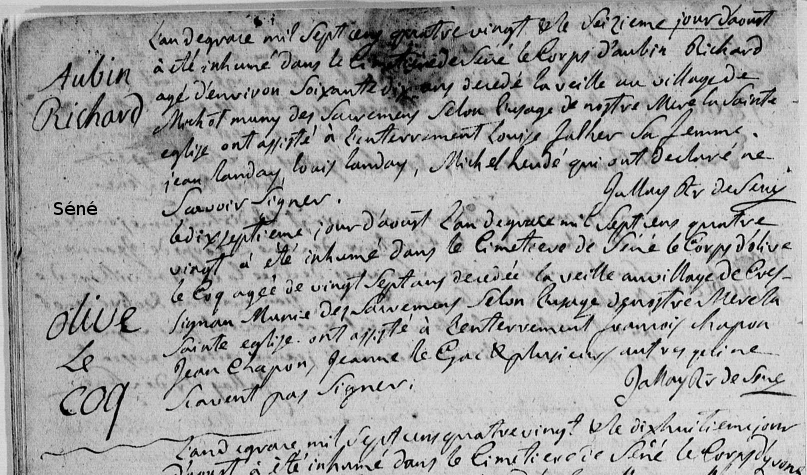 Aubin
Richard
L'an de grace mil Sept cens quatre vingt & le Seizieme jour d'aoust
à été inhumé dans le Cimetiere de Séné le Corps d'aubin Richard
agé d'environ Soixante dix ans decedé la veille au village de
muny des Sacremens Selon l'usage de nostre Mere la Sainte
eglise ont assisté à l'enterrement Louise Jalher Sa femme.
jean landay louis landay, Michel qui ont declaré ne
Scavoir Signer.
de Séné
Séné
le dix Septieme jour d'aoust L'an de grace mil Sept cens quatre
vingt à été inhumé dans le Cimetiere de Séné le Corps d'olive
le Coq agée de vingt Sept ans decedée la veille au village de Cres-
signan Munie des Sacremens Selon l'usage de nostre Mere la
Sainte eglise. ont assisté à l'enterrement francois chapon
Jean Chapon, Jeanne le & plusieurs autres qui ne
Scavent pas Signer.
de Séné
olive
Le
coq
L'an de grace mil Sept cens quatre vingt & le dix huitieme jour
d'aoust à été inhumé dans le Cimetiere de Séné le Corps